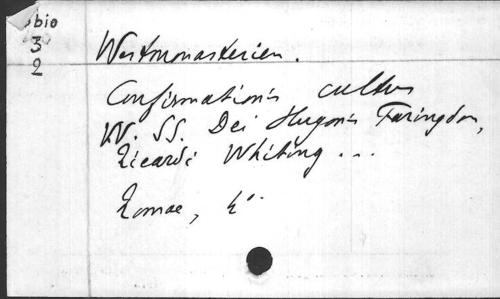 bio
3
2
Westmonasterien.
Confirmationis cultus
VV. SS. Dei Hugonis Faringdon,
Ricardi Whiting ...
Romae, 4°.